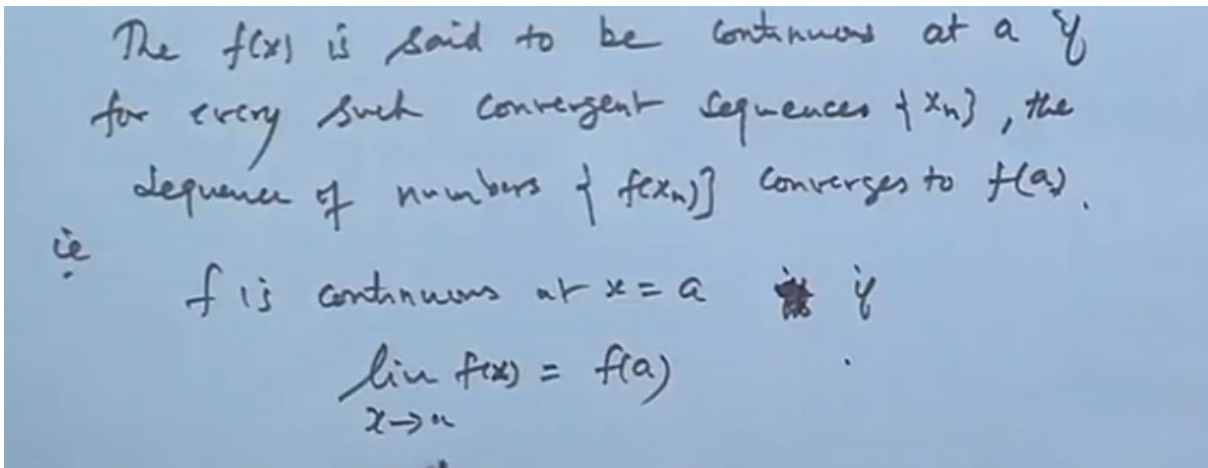 The f(x) is said to be continuous at a if
for every such convergent sequences {xn}, the
sequence of numbers { f(xn)} converges to f(a).
ie
f is continuous at x = a if
lim f(x) = f(a)
x→a